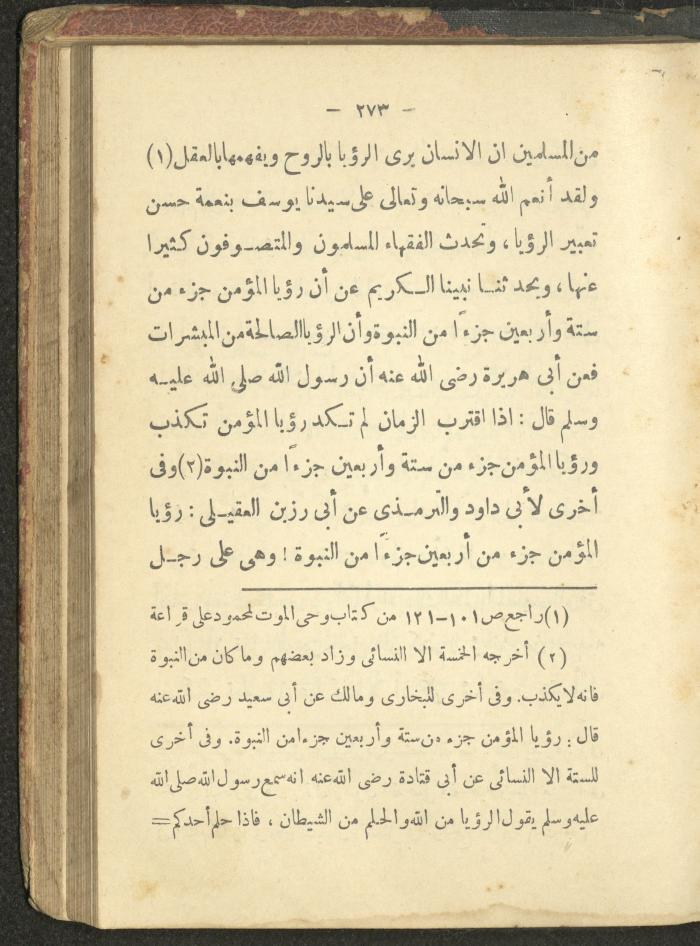 - ٢٧٣ -
من المسلمين ان الانسان يرى الرؤيا بالروح ويفهمها بالعقل (١)
ولقد أنعم الله سبحانه وتعالى على سيدنا يوسف بنعمة حسن
تعبير الرؤيا ، وتحدث الفقهاء المسلمون والمتصوفون كثيرا
عنها ، ويحدثنا نبينا الكريم عن أن رؤيا المؤمن جزء من
ستة وأربعين جزءًا من النبوة وأن الرؤيا الصالحة من المبشرات
فعن أبى هريرة رضى الله عنه أن رسول الله صلى الله عليه
وسلم قال : اذا اقترب الزمان لم تكد رؤيا المؤمن تكذب
ورؤيا المؤمن جزء من ستة وأربعين جزءًا من النبوة (٢) وفى
أخرى لأبى داود والترمذى عن أبى رزين العقيلى : رؤيا
المؤمن جزء من أربعين جزءًا من النبوة ! وهى على رجل
(١) راجع ص ١٠١-١٢١ من كتاب وحى الموت لمحمود على قراعة
(٢) أخرجه الخمسة الا النسائى وزاد بعضهم وما كان من النبوة
فانه لا يكذب. وفى أخرى للبخارى ومالك عن أبى سعيد رضى الله عنه
قال : رؤيا المؤمن جزء من ستة وأربعين جزءا من النبوة. وفى أخرى
للستة الا النسائى عن أبى قتادة رضى الله عنه انه سمع رسول الله صلى الله
عليه وسلم يقول الرؤيا من الله والحلم من الشيطان ، فاذا حلم أحدكم =